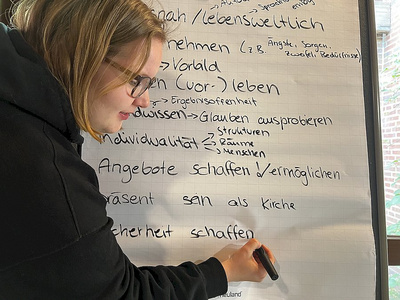 nah / lebensweltlich
nehmen (z.B. Ängste, Sorgen,
Zweifel, Bedürfnisse)
→ Vorbild
(vor-) leben
→ Ergebnisoffenheit
wissen → Glauben ausprobieren
Individualität → Strukturen
→ Räume
→ Menschen
Angebote schaffen / ermöglichen
präsent sein als Kirche
Sicherheit schaffen
neuland